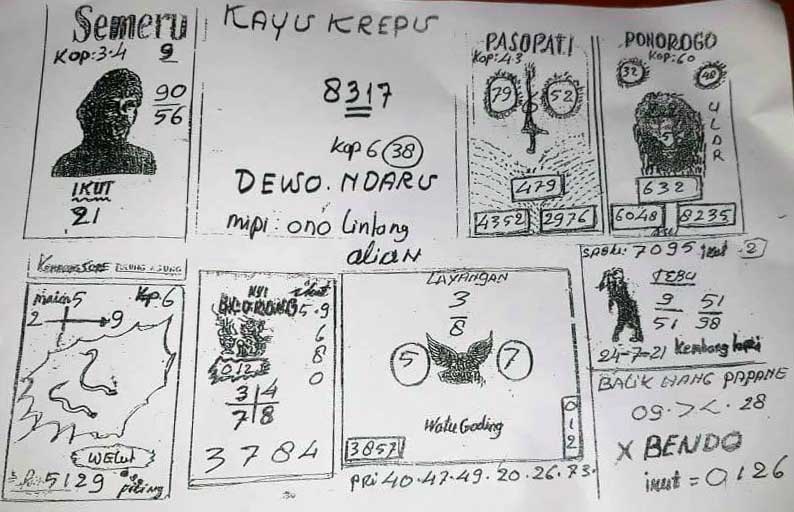 Semeru
KOP:3.4 9
90
56
IKUT
21
KAYU KREPU
8317
Kop 6 38
DEWO.NDARU
mipi: ono Lintang
alian
PASOPATI
KOP:43
79 52
479
4352 2976
PONOROGO
KOP:60
32
ULAR
632
6048 8235
main 5 Kop.6
2 9
WELUT
5129
NYI
BLORONG 5.9
6
8
0
012
3 4
7 8
3784
LAYANGAN
3
8
5 7
Watu Gading
3857
0
1
2
PRI 40.47.49.20.26.73.
7095 ikut 2
TEBU
9 51
51 98
24-7-21 Kembang kopi
BALIK WANG PAPANE
09.><.28
X BENDO
ikut = 0126